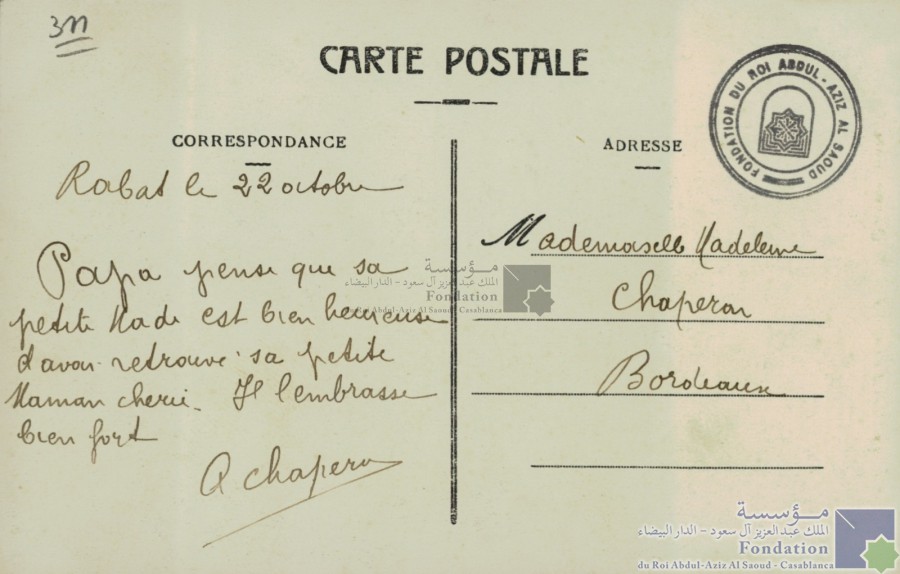 311
CARTE POSTALE
FONDATION DU ROI ABDUL-AZIZ AL SAOUD
CORRESPONDANCE
Rabat le 22 octobre
Papa pense que sa
petite Made est bien heureuse
d'avoir retrouvé sa petite
Maman cherie. Il l'embrasse
bien fort
A Chaperon
ADRESSE
Mademoiselle Madeleine
Chaperon
Bordeaux
مؤسسة
الملك عبد العزيز آل سعود - الدار البيضاء
Fondation
du Roi Abdul-Aziz Al Saoud - Casablanca
مؤسسة
الملك عبد العزيز آل سعود - الدار البيضاء
Fondation
du Roi Abdul-Aziz Al Saoud - Casablanca